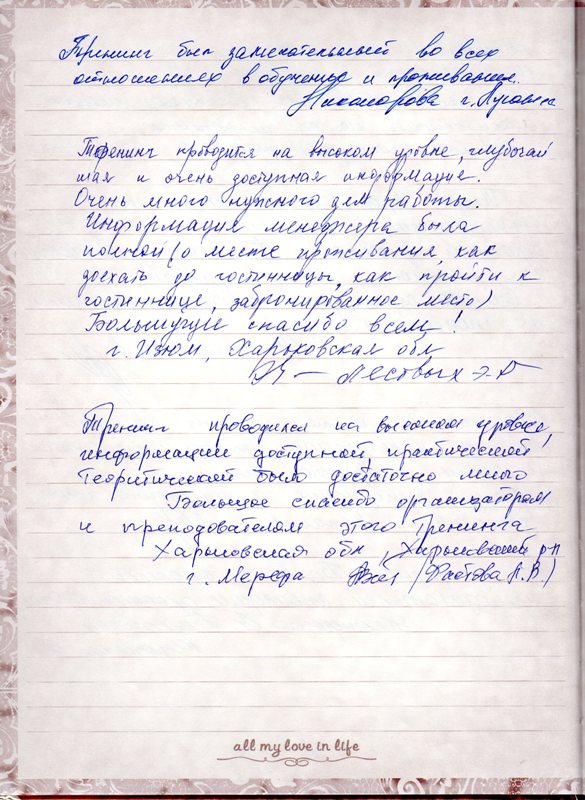 Тренинг был замечательный во всех
отношениях в обучение и проживания.
Никонорова г.
Тренинг проводится на высоком уровне, глубочай
шая и очень доступная информацие.
Очень много нужного для работы.
Информация менеджера была
полной (о месте проживания, как
доехать до гостинницы, как пройти к
гостиннице, забронированное место)
Большущее спасибо всем!
г. Изюм, Харьковская обл
Лествых Э.Г
Тренинг проводился на высоком уровне,
информации доступной, практической
теоритической было достаточно много
Большое спасибо организатором
и преподователом этого Тренинга
Харьковская обл, Харьковский р-н
г. Мерефа (Фастова Л.В.)
all my love in life